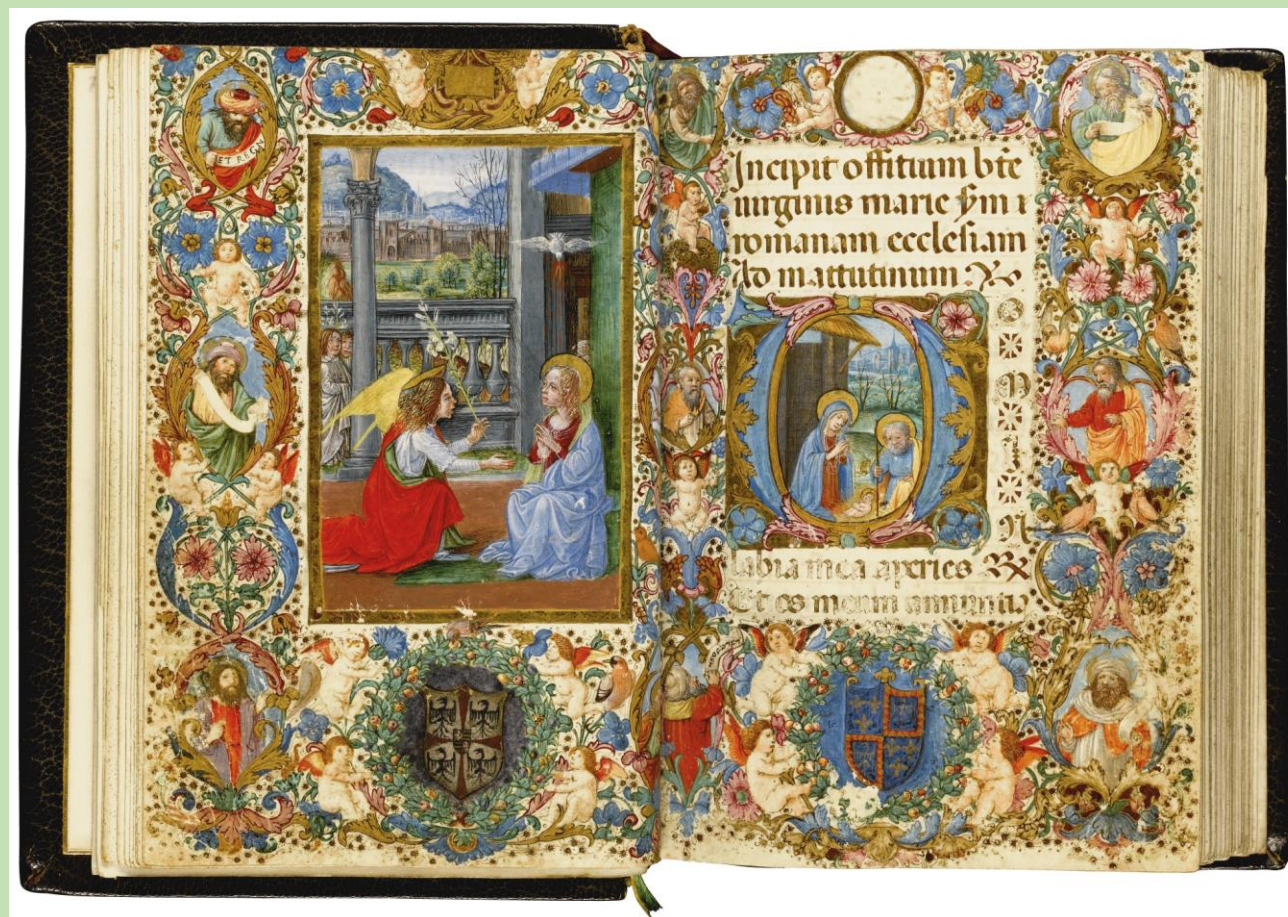 ET REGN
Incipit offitium bte
uirginis marie sm
romanam ecclesiam
Ad mattutinum
O
M
I
N
labia mea aperies
Et os meum annuntia